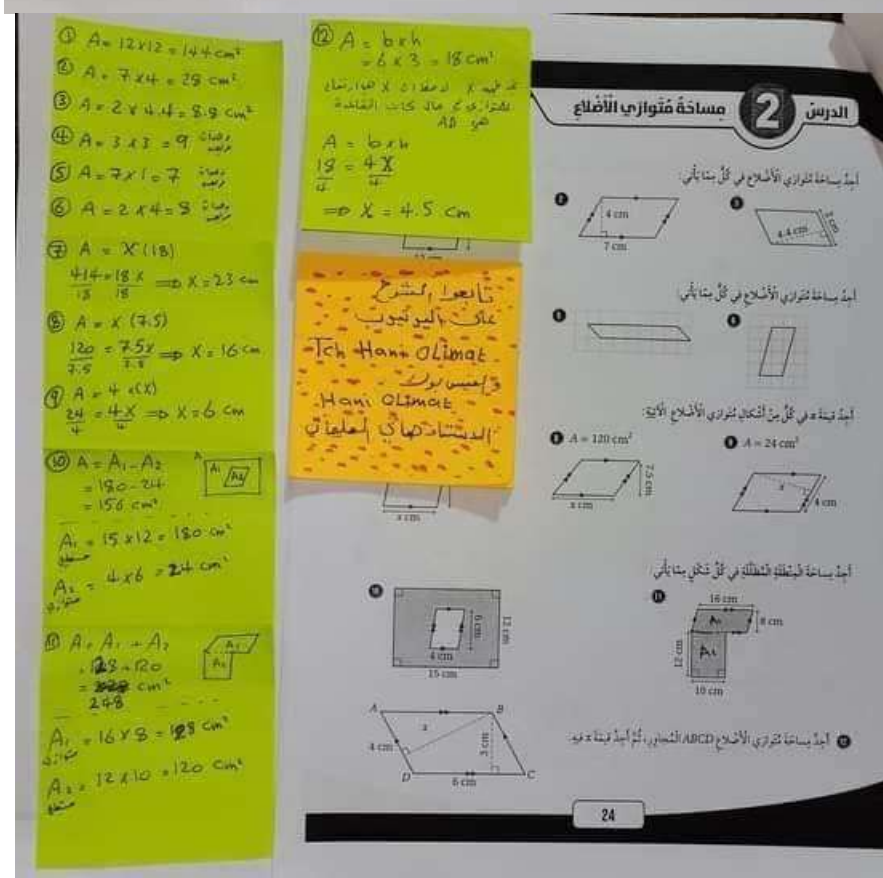 ① A = 12×12 = 144 cm²
② A = 7×4 = 28 cm²
③ A = 2×4.4 = 8.8 cm²
④ A = 3×3 = 9 وحدات مربعة
⑤ A = 7×1 = 7 وحدات مربعة
⑥ A = 2×4 = 8 وحدات مربعة
⑦ A = X(18)
414/18 = 18X/18 ⟹ X = 23 cm
⑧ A = X(7.5)
120/7.5 = 7.5X/7.5 ⟹ X = 16 cm
⑨ A = 4 × (X)
24/4 = 4X/4 ⟹ X = 6 cm
⑩ A = A₁ - A₂
= 180 - 24
= 156 cm²
A
A₁
A₂
A₁ = 15×12 = 180 cm²
مستطيل
A₂ = 4×6 = 24 cm²
متوازي
⑪ A = A₁ + A₂
= 128 + 120
= cm²
248
A₁
A₂
A₁ = 16×8 = 128 cm²
متوازي
A₂ = 12×10 = 120 cm²
مستطيل
⑫ A = b×h
= 6×3 = 18 cm²
X
X هو ارتفاع
المتوازي في حال كانت القاعدة
هي AD
A = b×h
18/4 = 4X/4
⟹ X = 4.5 cm
تابعوا الشرح
على اليوتيوب
Tch Hani OLimat
والفيس بوك
Hani OLimat
الاستاذ هاني العليمات
الدرس 2 مساحة متوازي الأضلاع
أجد مساحة متوازي الأضلاع في كل مما يأتي:
2
4 cm
7 cm
3
4.4 cm
2 cm
أجد مساحة متوازي الأضلاع في كل مما يأتي:
5
6
أجد قيمة x في كل من أشكال متوازي الأضلاع الآتية:
8 A = 120 cm²
7.5 cm
x cm
9 A = 24 cm²
x
4 cm
x cm
أجد مساحة المنطقة المظللة في كل شكل مما يأتي
10
6 cm
12 cm
4 cm
15 cm
11
16 cm
A₁
8 cm
12 cm
A₂
10 cm
12 أجد مساحة متوازي الأضلاع ABCD المجاور، ثم أجد قيمة x فيه.
A
B
x
4 cm
3 cm
D
6 cm
C
24